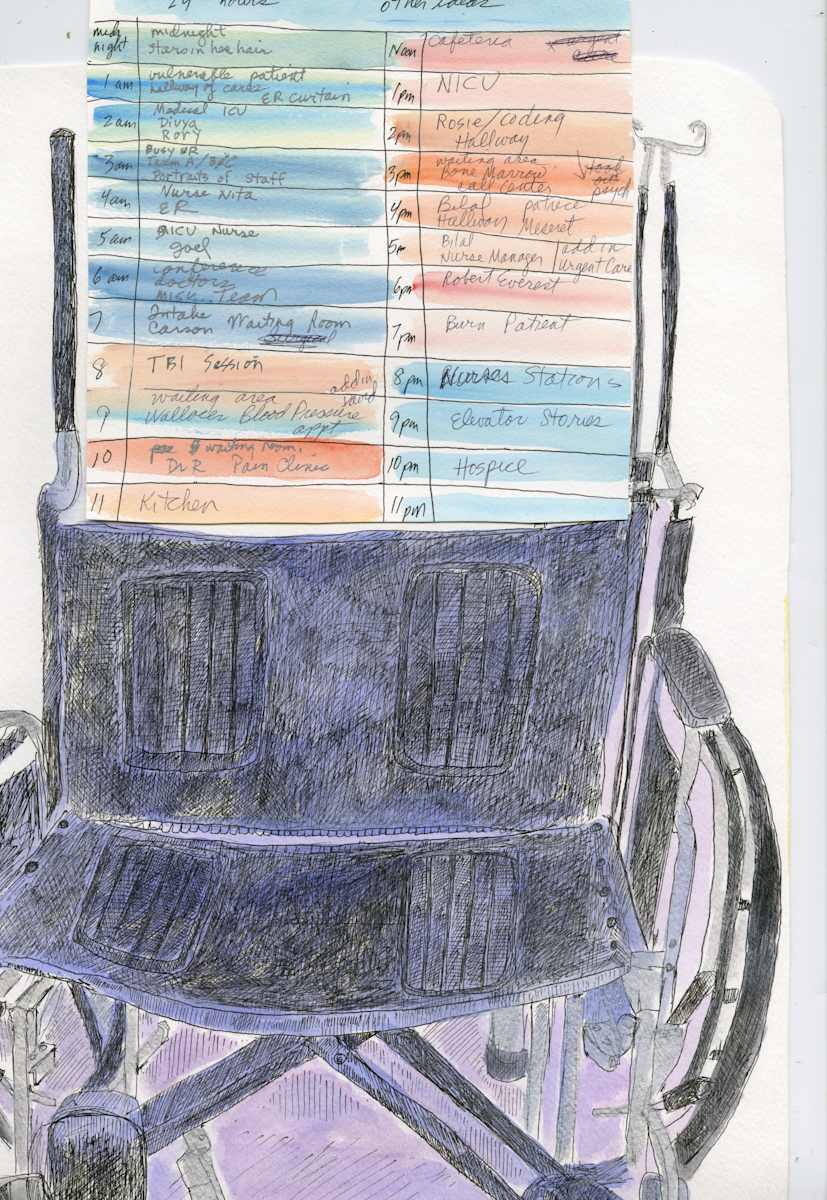 24 hours
other ideas
midnight
midnight
stars in her hair
1 am
vulnerable patient
hallway of cards
ER curtain
2 am
Medical ICU
Divya
Rory
3am
Busy OR
Team A/
Portraits of staff
4am
Nurse Nita
ER
5am
SICU Nurse
gael
6 am
conference
doctors
MICU Team
7
Intake
Carson Waiting Room
8
TBI Session
9
waiting area
add in
Wallace's Blood Pressure
appt
10
waiting room,
Dr R Pain Clinic
11
Kitchen
Noon
Cafeteria
1pm
NICU
2pm
Rosie/coding
Hallway
3pm
waiting area
Bone Marrow
call center
psych
4pm
Bilal patrice
Hallway Meseret
5pm
Bilal
Nurse Manager
add in
Urgent Care
6pm
Robert Everest
7pm
Burn Patient
8pm
Nurses Stations
9pm
Elevator Stories
10pm
Hospice
11pm